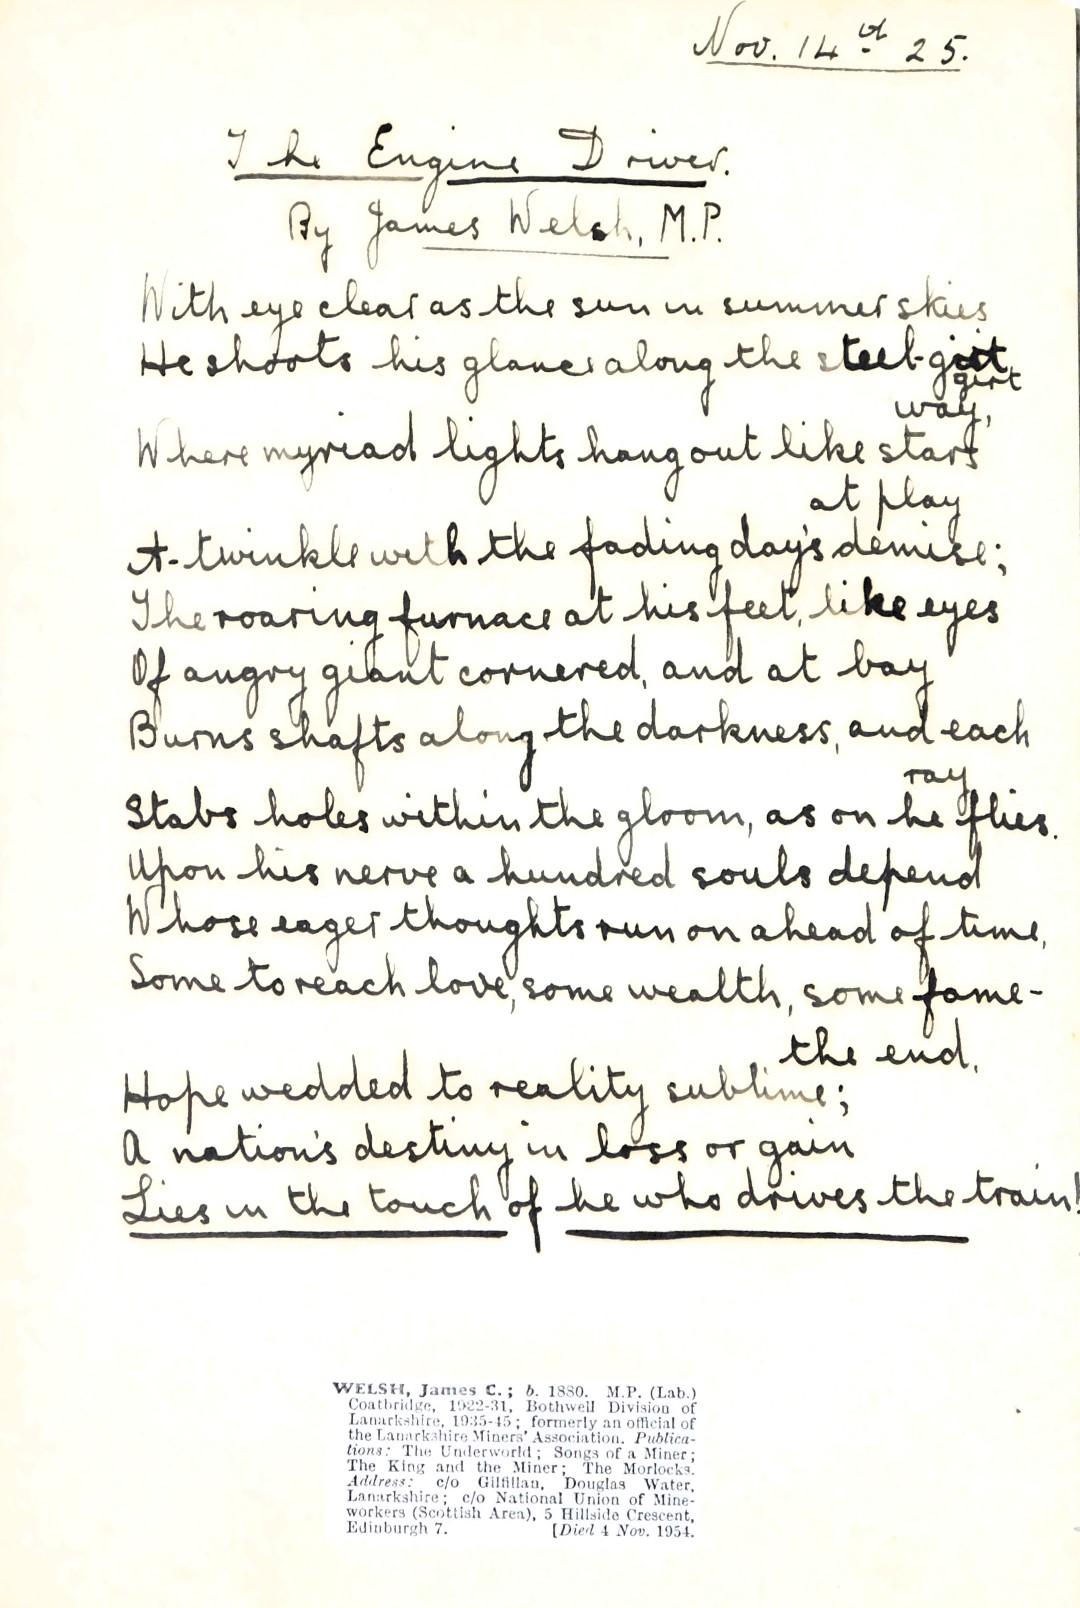 Nov. 14th 25.
The Engine Driver.
By James Welsh, M.P.
With eye clear as the sun in summer skies
He shoots his glance along the steel-girt
girt
way,
Where myriad lights hang out like stars
at play
A-twinkle with the fading day's demise;
The roaring furnace at his feet, like eyes
Of angry giant cornered, and at bay
Burns shafts along the darkness, and each
ray
Stabs holes within the gloom, as on he flies.
Upon his nerve a hundred souls depend
Whose eager thoughts run on ahead of time,
Some to reach love, some wealth, some fame-
the end,
Hope wedded to reality sublime;
A nation's destiny in loss or gain
Lies in the touch of he who drives the train!
WELSH, James C.; b. 1880. M.P. (Lab.)
Coatbridge, 1922-31, Bothwell Division of
Lanarkshire, 1935-45; formerly an official of
the Lanarkshire Miners' Association. Publica-
tions: The Underworld; Songs of a Miner;
The King and the Miner; The Morlocks.
Address: c/o Gilfillan, Douglas Water,
Lanarkshire; c/o National Union of Mine-
workers (Scottish Area), 5 Hillside Crescent,
Edinburgh 7. [Died 4 Nov. 1954.